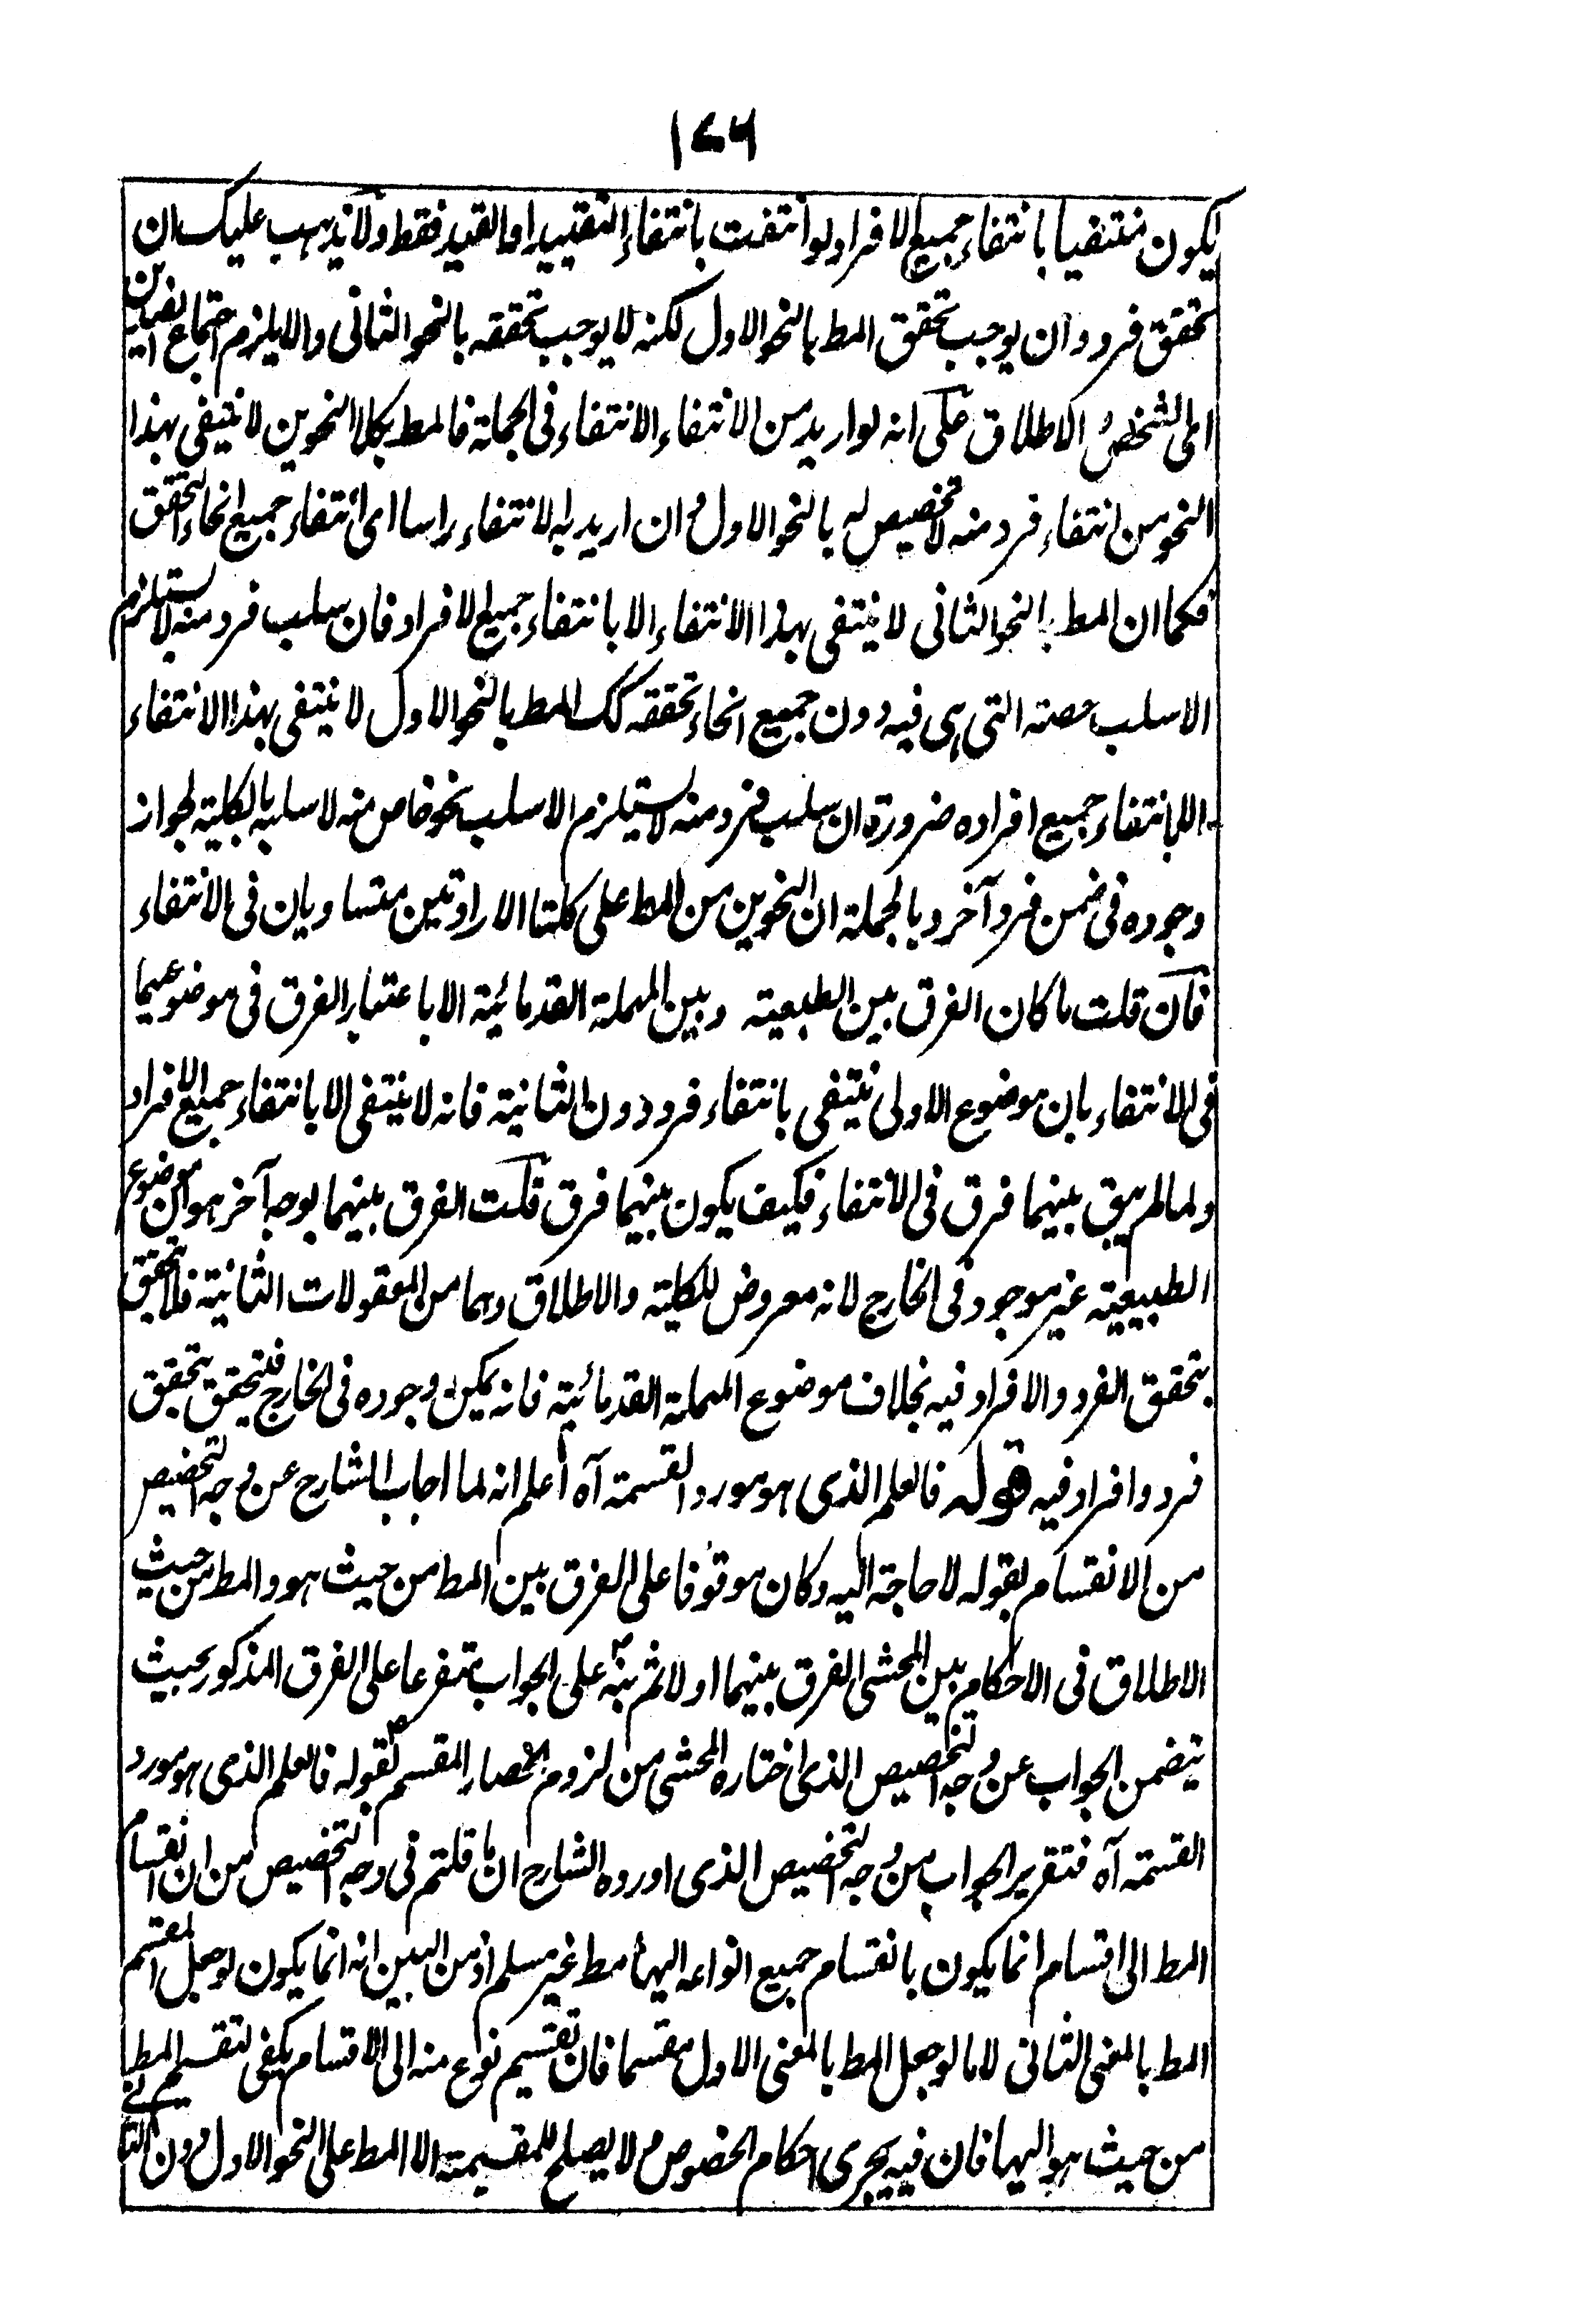 ۱۷۶
يكون منتفيا بانتفاء جميع الافراد لو انتفت بانتفاء التقييد او القيد فقط ولا يذهب عليك ان
تحقق فرد وان يوجب تحقق المط بالنحو الاول لكنه لا يوجب تحققه بالنحو الثانى والا يلزم اجتماع المتنافيين
اى التشخص والاطلاق على انه لو اريد من الانتفاء الانتفاء فى الجملة فالمط بكلا النحوين لا ينتفى بهذا
النحو من انتفاء فرد منه لا تخصيص له بالنحو الاول وان اريد به الانتفاء راسا اى انتفاء جميع انحاء التحقق
فكما ان المط بالنحو الثانى لا ينتفى بهذا الانتفاء الا بانتفاء جميع الافراد فان سلب فرد منه لا يستلزم
الا سلب حصته التى هى فيه دون جميع انحاء تحققه كك المط بالنحو الاول لا ينتفى بهذا الانتفاء
الا بانتفاء جميع افراده ضرورة ان سلب فرد منه لا يستلزم الا سلب نحو خاص منه لا سلبه بالكلية لجواز
وجوده فى ضمن فرد آخر وبالجملة ان النحوين من المط على كلتا الارادتين متساويان فى الانتفاء
فان قلت ما كان الفرق بين الطبعية وبين المهملة القدمائية الا باعتبار الفرق فى موضوعيهما
فى الانتفاء بان موضوع الاولى ينتفى بانتفاء فرد دون الثانية فانه لا ينتفى الا بانتفاء جميع الافراد
ولما لم يبق بينهما فرق فى الانتفاء فكيف يكون بينهما فرق قلت الفرق بينهما بوجه آخر هو ان موضوع
الطبيعية غير موجود فى الخارج لانه معروض للكلية والاطلاق وهما من المعقولات الثانية فلا تحقق
بتحقق الفرد والافراد فيه بخلاف موضوع المهملة القدمائية فانه يمكن وجوده فى الخارج فيتحقق بتحقق
فرد وافراد فيه قوله فالعلم الذى هو مورد القسمة آه اعلم انه لما اجاب الشارح عن وجه التخصيص
من الانقسام بقوله لا حاجة اليه وكان موقوفا على الفرق بين المط من حيث هو والمط من حيث
الاطلاق فى الاحكام بين المحشى الفرق بينهما اولا ثم نبه على الجواب متفرعا على الفرق المذكور بحيث
يتضمن الجواب عن وجه التخصيص الذى اختاره المحشى من لزوم انحصار المقسم بقوله فالعلم الذى هو مورد
القسمة آه فتقرير الجواب من وجه التخصيص الذى اورده الشارح ان ما قلتم فى وجه التخصيص من ان انقسام
المط الى اقسام انما يكون بانقسام جميع انواعه اليها مط غير مسلم اذ من البين انه انما يكون لو جعل المقسم
المط بالمعنى الثانى لا ما لو جعل المط بالمعنى الاول مقسما فان تقسيم نوع منه الى الاقسام يكفى لتقسيم المط
من حيث هو اليها فان فيه يجرى احكام الخصوص ولا يصلح للمقسمية الا المط على النحو الاول دون الثانى